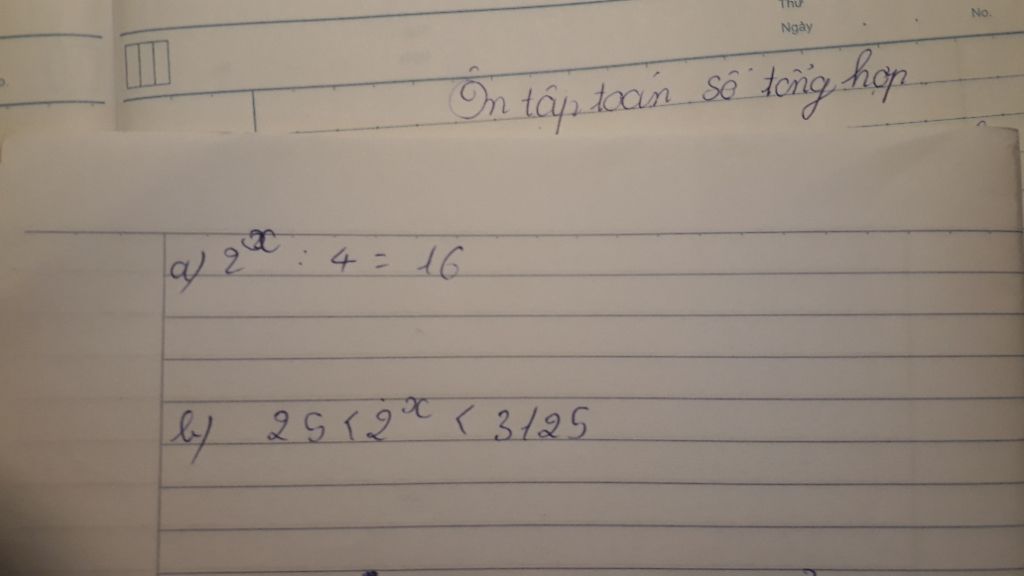 Thứ
Ngày
No.
Ôn tập toán số tổng hợp
a) 2^x : 4 = 16
b) 25 < 2^x < 3125